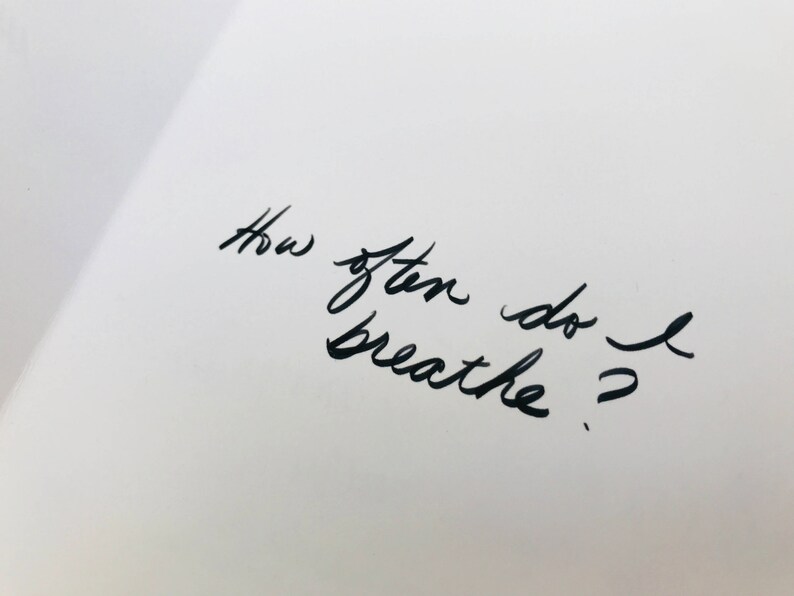 How often do I
breathe?